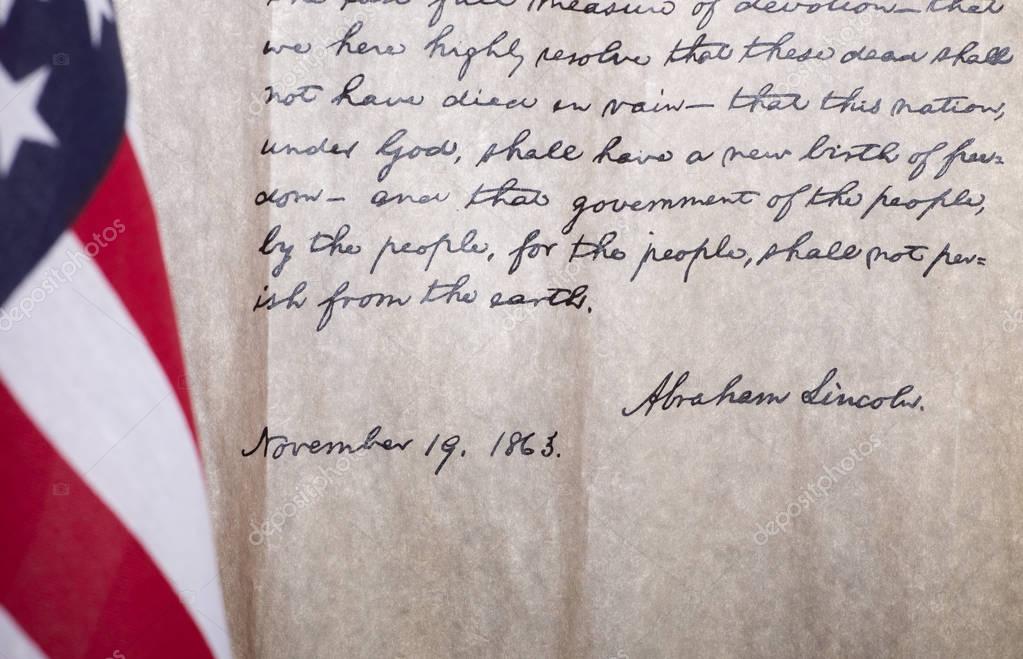 the last full measure of devotion— that
we here highly resolve that these dead shall
not have died in vain— that this nation,
under God, shall have a new birth of free=
dom— and that government of the people,
by the people, for the people, shall not per=
ish from the earth.
Abraham Lincoln.
November 19. 1863.
depositphotos
depositphotos
depositphotos
depositphotos
depositphotos
depositphotos